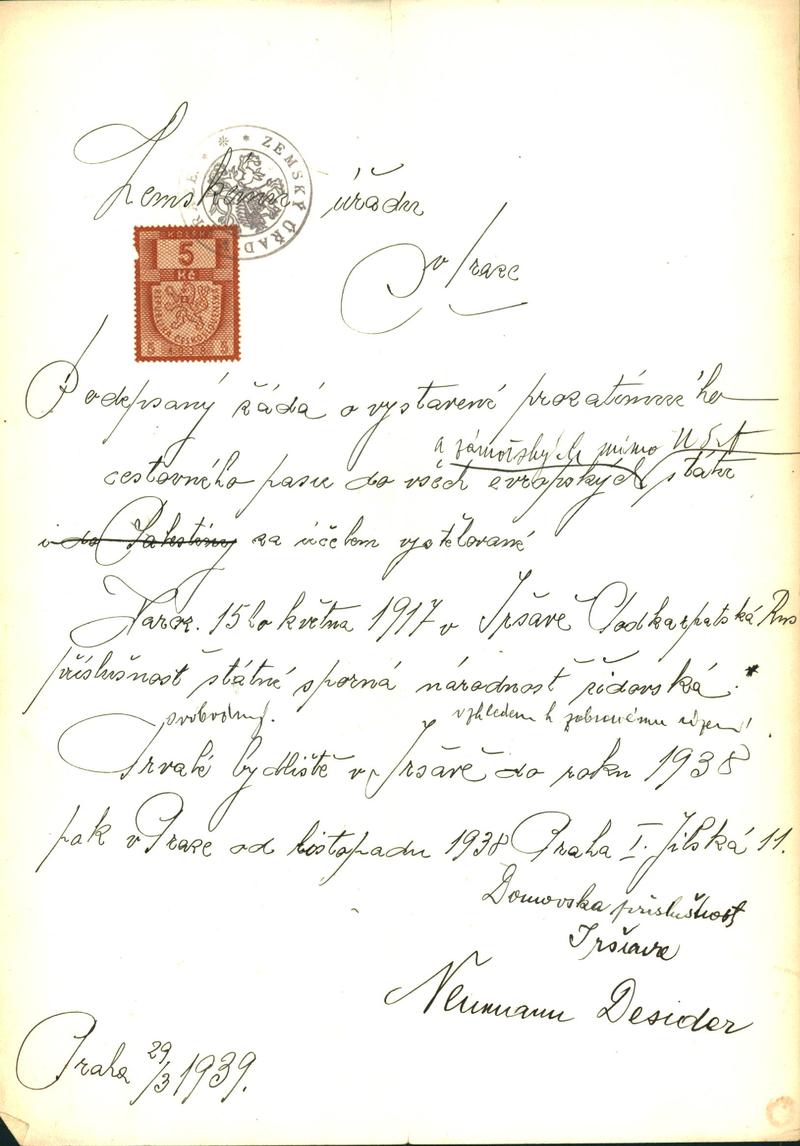 ZEMSKÝ ÚŘAD
Zemskému úřadu
v Praze
KOLEK
5
Kč
REPUBLIKA ČESKOSLOVENSKÁ
5 5
Podepsaný žádá o vystavení prozatímního
a zámořských mimo
cestovného pasu do všech evropských států
i do Palestiny za účelem vystěhování
Naroz. 15ho května 1917 v Iršavě Podkarpatská Rus
příslušnost státní sporná národnost židovská.*
svobodný. vzhledem k zabranému území
Trvalé bydliště v Iršavě do roku 1938
pak v Praze od listopadu 1938 Praha I. Jilská 11.
Domovska příslušnost
Iršava
Neumann Desider
Praha 29/3 1939.